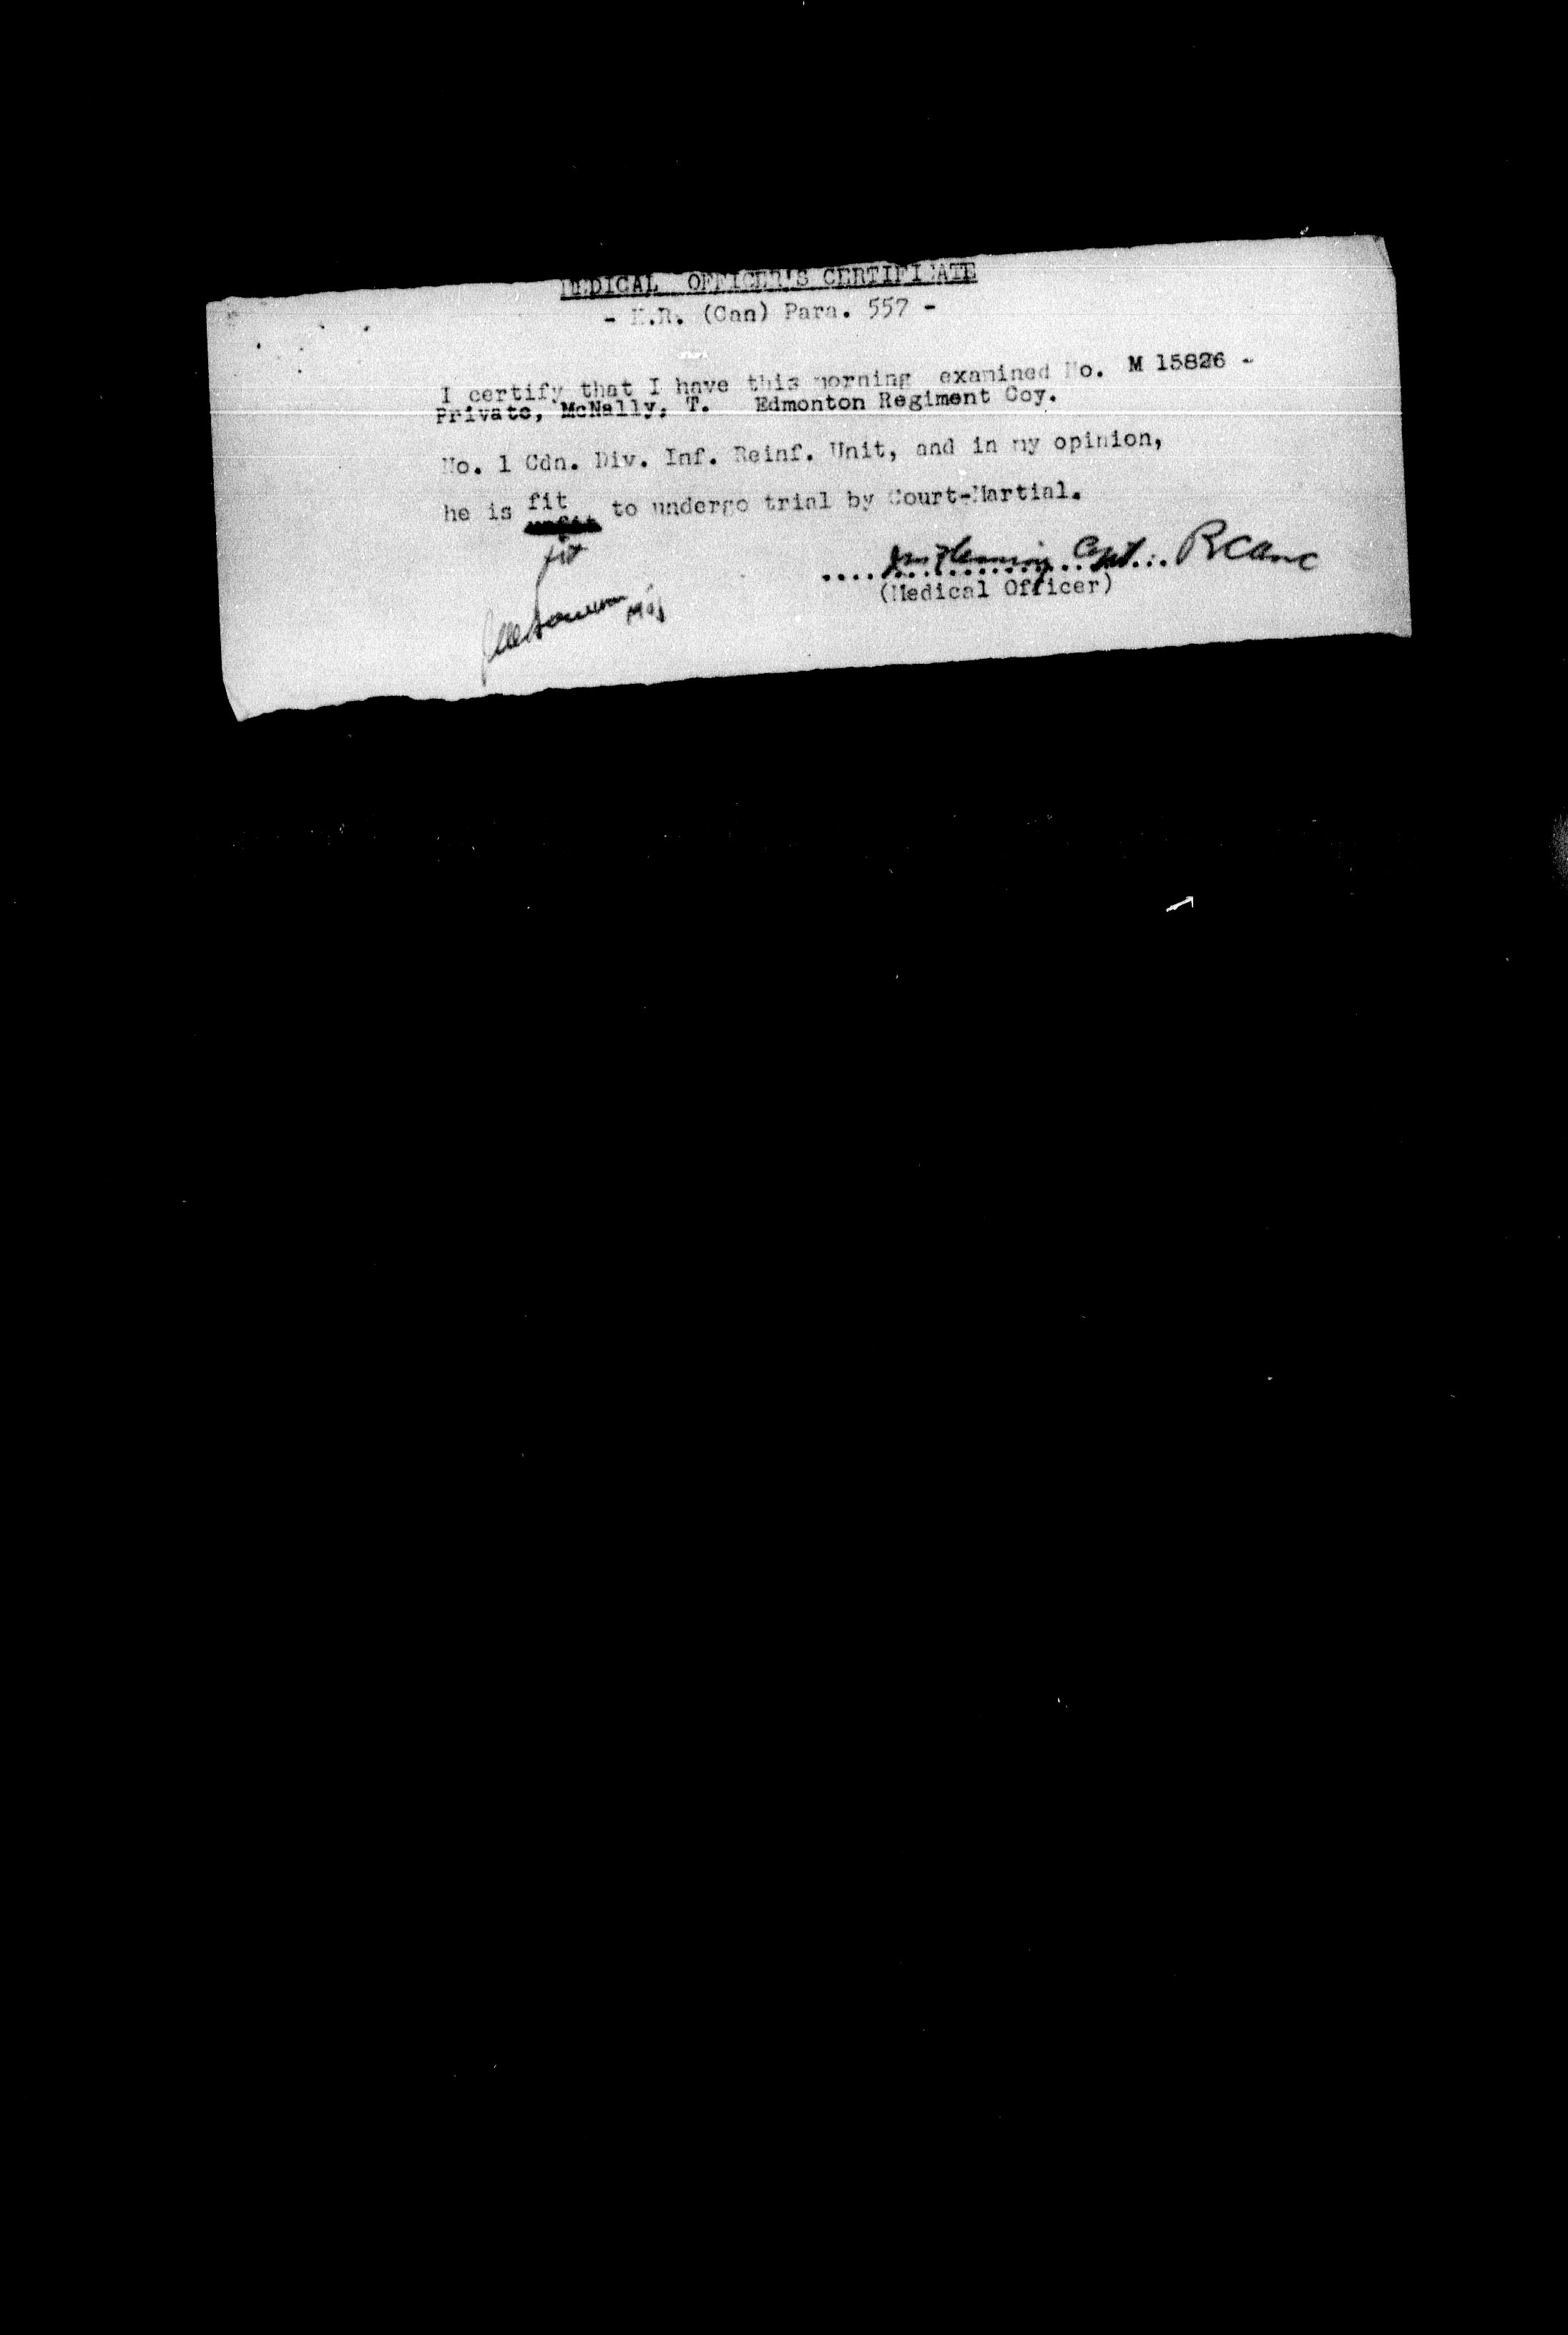 MEDICAL OFFICER'S CERTIFICATE
- K.R. (Can) Para. 557 -
I certify that I have this morning examined No. M 15826 -
Private, McNally, T. Edmonton Regiment Coy.
No. 1 Cdn. Div. Inf. Reinf. Unit, and in my opinion,
he is fit to undergo trial by Court-Martial.
unfit
fit
Capt. RCAMC
(Medical Officer)
Maj